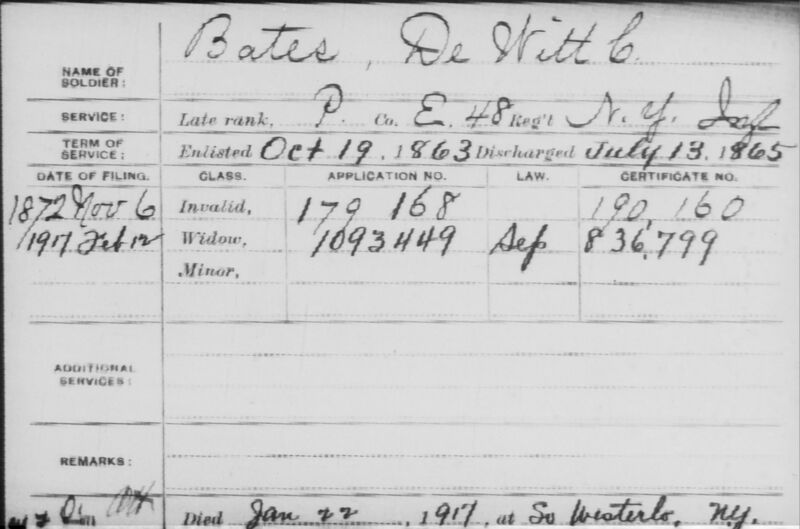 Bates, De Witt C.
NAME OF SOLDIER:
SERVICE: Late rank, P. Co. E. 48 Reg't N.Y. Inf
TERM OF SERVICE: Enlisted Oct 19, 1863 Discharged July 13, 1865
DATE OF FILING. CLASS. APPLICATION NO. LAW. CERTIFICATE NO.
1872 Nov 6 Invalid, 179 168 190,160
1917 Feb 12 Widow, 1093449 Sep 836,799
Minor,
ADDITIONAL SERVICES:
REMARKS:
Died Jan 22, 1917, at So Westerlo, NY.